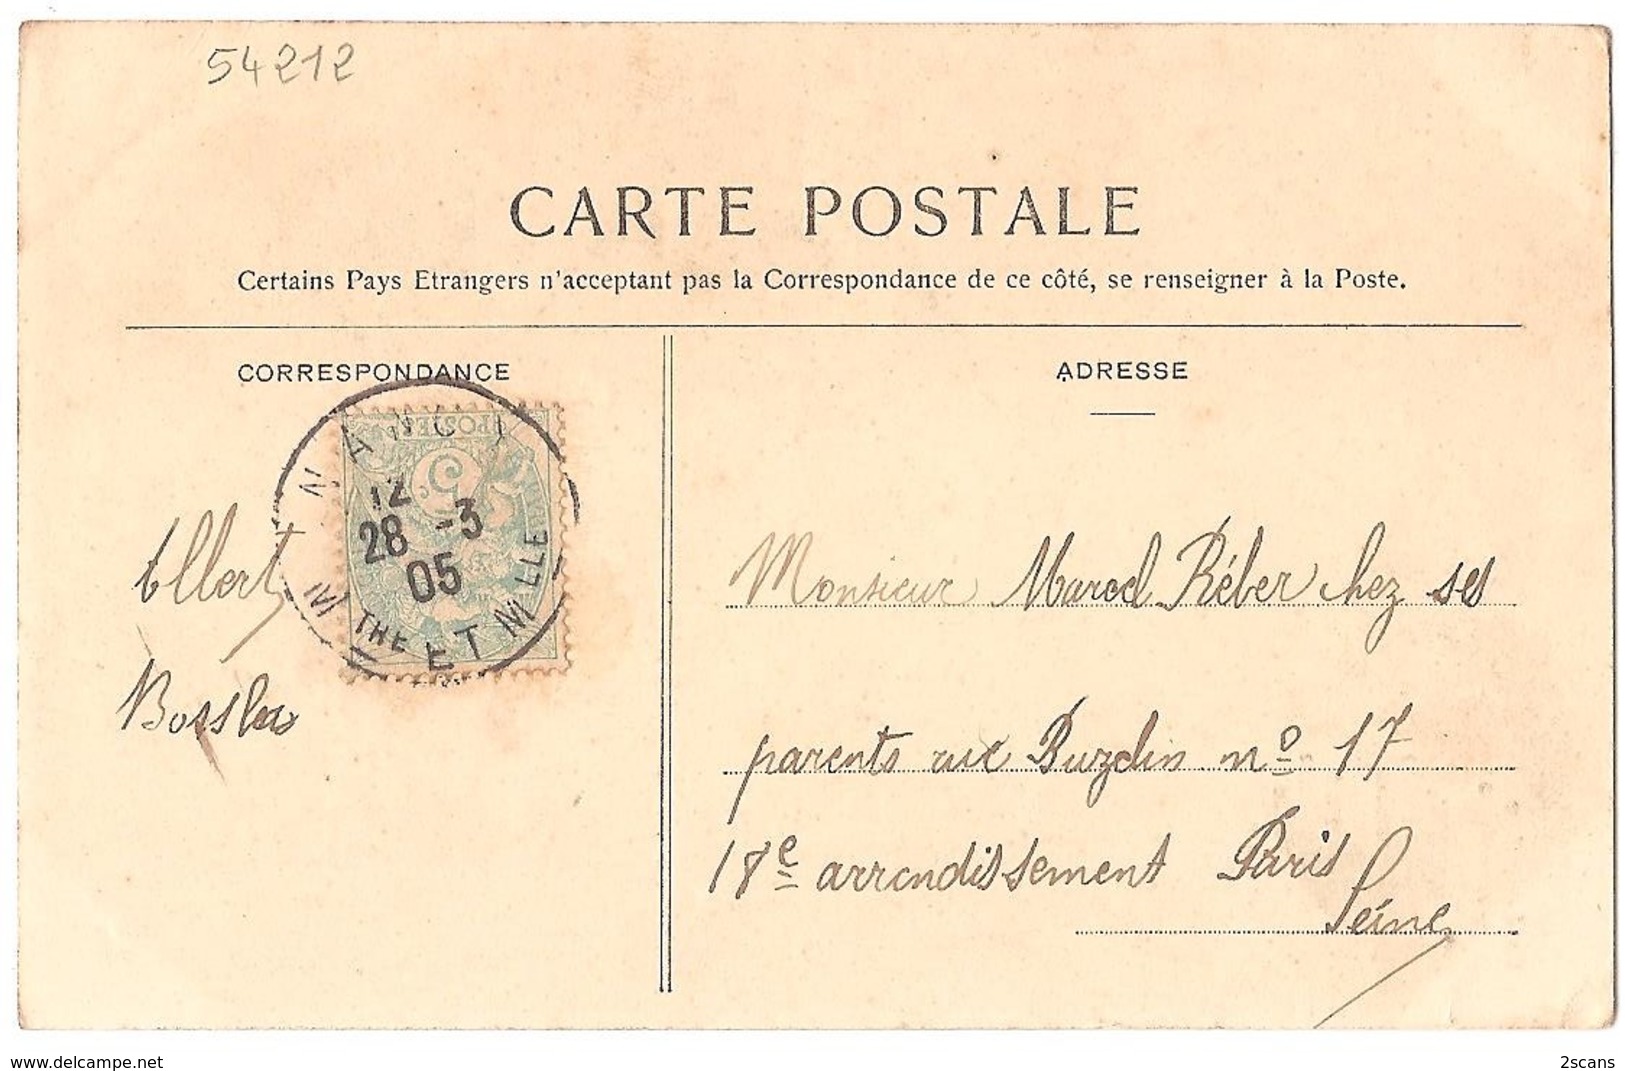 54212
CARTE POSTALE
Certains Pays Etrangers n'acceptant pas la Correspondance de ce côté, se renseigner à la Poste.
CORRESPONDANCE
ADRESSE
POSTES
5
NANCY
12
28 -3
05
MTHE ET MLLE
Monsieur Marcel Réber chez ses
parents rue Buzelin nº 17
18e arrondissement Paris
Seine
www.delcampe.net
2scans